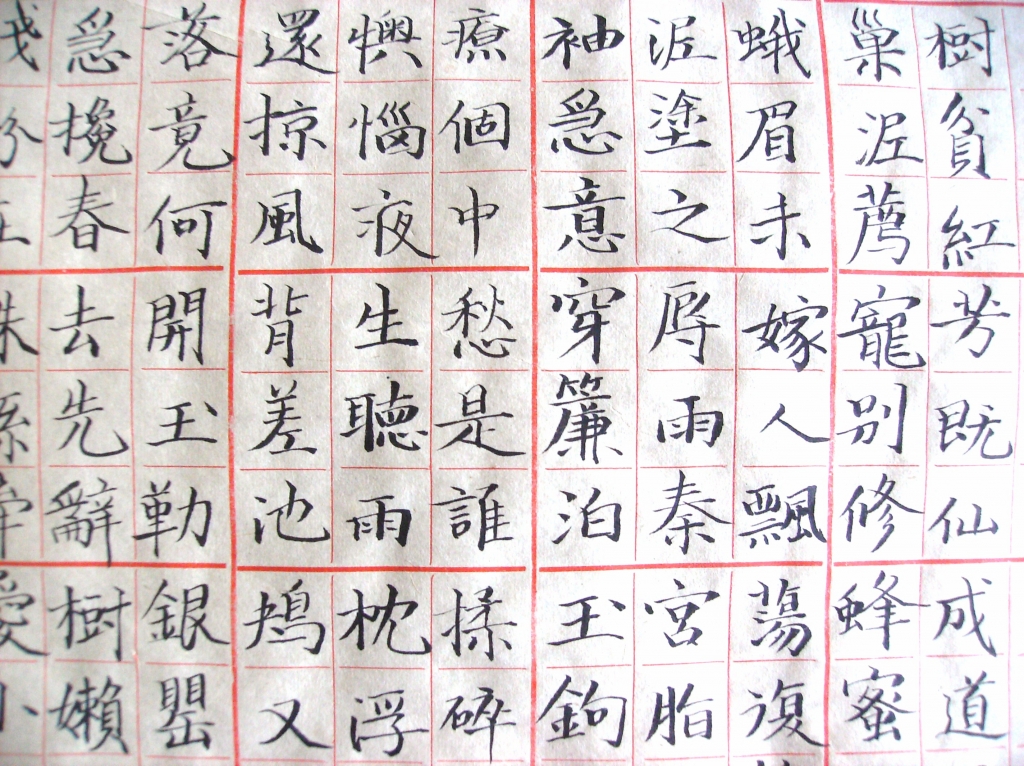 樹貧紅芳既仙成道
巢泥薦寵別修蜂蜜
蛾眉未嫁人飄蕩復
泥塗之辱雨秦宮脂
袖急意穿簾泊玉鉤
療個中愁是誰揉碎
懊惱夜生聽雨枕浮
還掠風背差池又
落竟何開玉勒銀罌
急攙春去先辭樹嬾